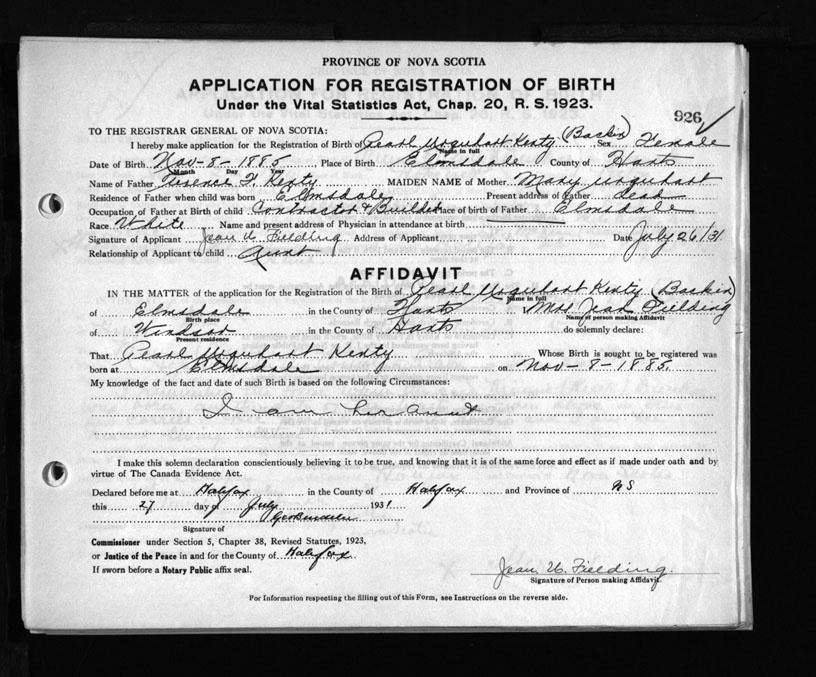 PROVINCE OF NOVA SCOTIA
APPLICATION FOR REGISTRATION OF BIRTH
Under the Vital Statistics Act, Chap. 20, R. S. 1923.
926
TO THE REGISTRAR GENERAL OF NOVA SCOTIA:
I hereby make application for the Registration of Birth of Pearl Urquhart Kenty Sex Female
Name in full
Date of Birth Nov-8-1885 Place of Birth Elmsdale County of Hants
Month Day Year
Name of Father Kenty MAIDEN NAME of Mother Mary Urquhart
Residence of Father when child was born Elmsdale Present address of Father dead
Occupation of Father at Birth of child Contractor & Builder Place of birth of Father Elmsdale
Race White Name and present address of Physician in attendance at birth
Signature of Applicant Jean U. Fielding Address of Applicant Date July 26/31
Relationship of Applicant to child Aunt
AFFIDAVIT
IN THE MATTER of the application for the Registration of the Birth of Pearl Urquhart Kenty
Name in full
of Elmsdale in the County of Hants Mrs Jean Fielding
Birth place Name of person making Affidavit
of Windsor in the County of Hants do solemnly declare:
Present residence
That Pearl Urquhart Kenty Whose Birth is sought to be registered was
born at Elmsdale on Nov-8-1885.
My knowledge of the fact and date of such Birth is based on the following Circumstances:
I am her aunt
I make this solemn declaration conscientiously believing it to be true, and knowing that it is of the same force and effect as if made under oath and by
virtue of The Canada Evidence Act.
Declared before me at Halifax in the County of Halifax and Province of NS
this 27 day of July 1931
Signature of
Commissioner under Section 5, Chapter 38, Revised Statutes, 1923,
or Justice of the Peace in and for the County of Halifax
If sworn before a Notary Public affix seal.
Jean U. Fielding.
Signature of Person making Affidavit.
For Information respecting the filling out of this Form, see Instructions on the reverse side.